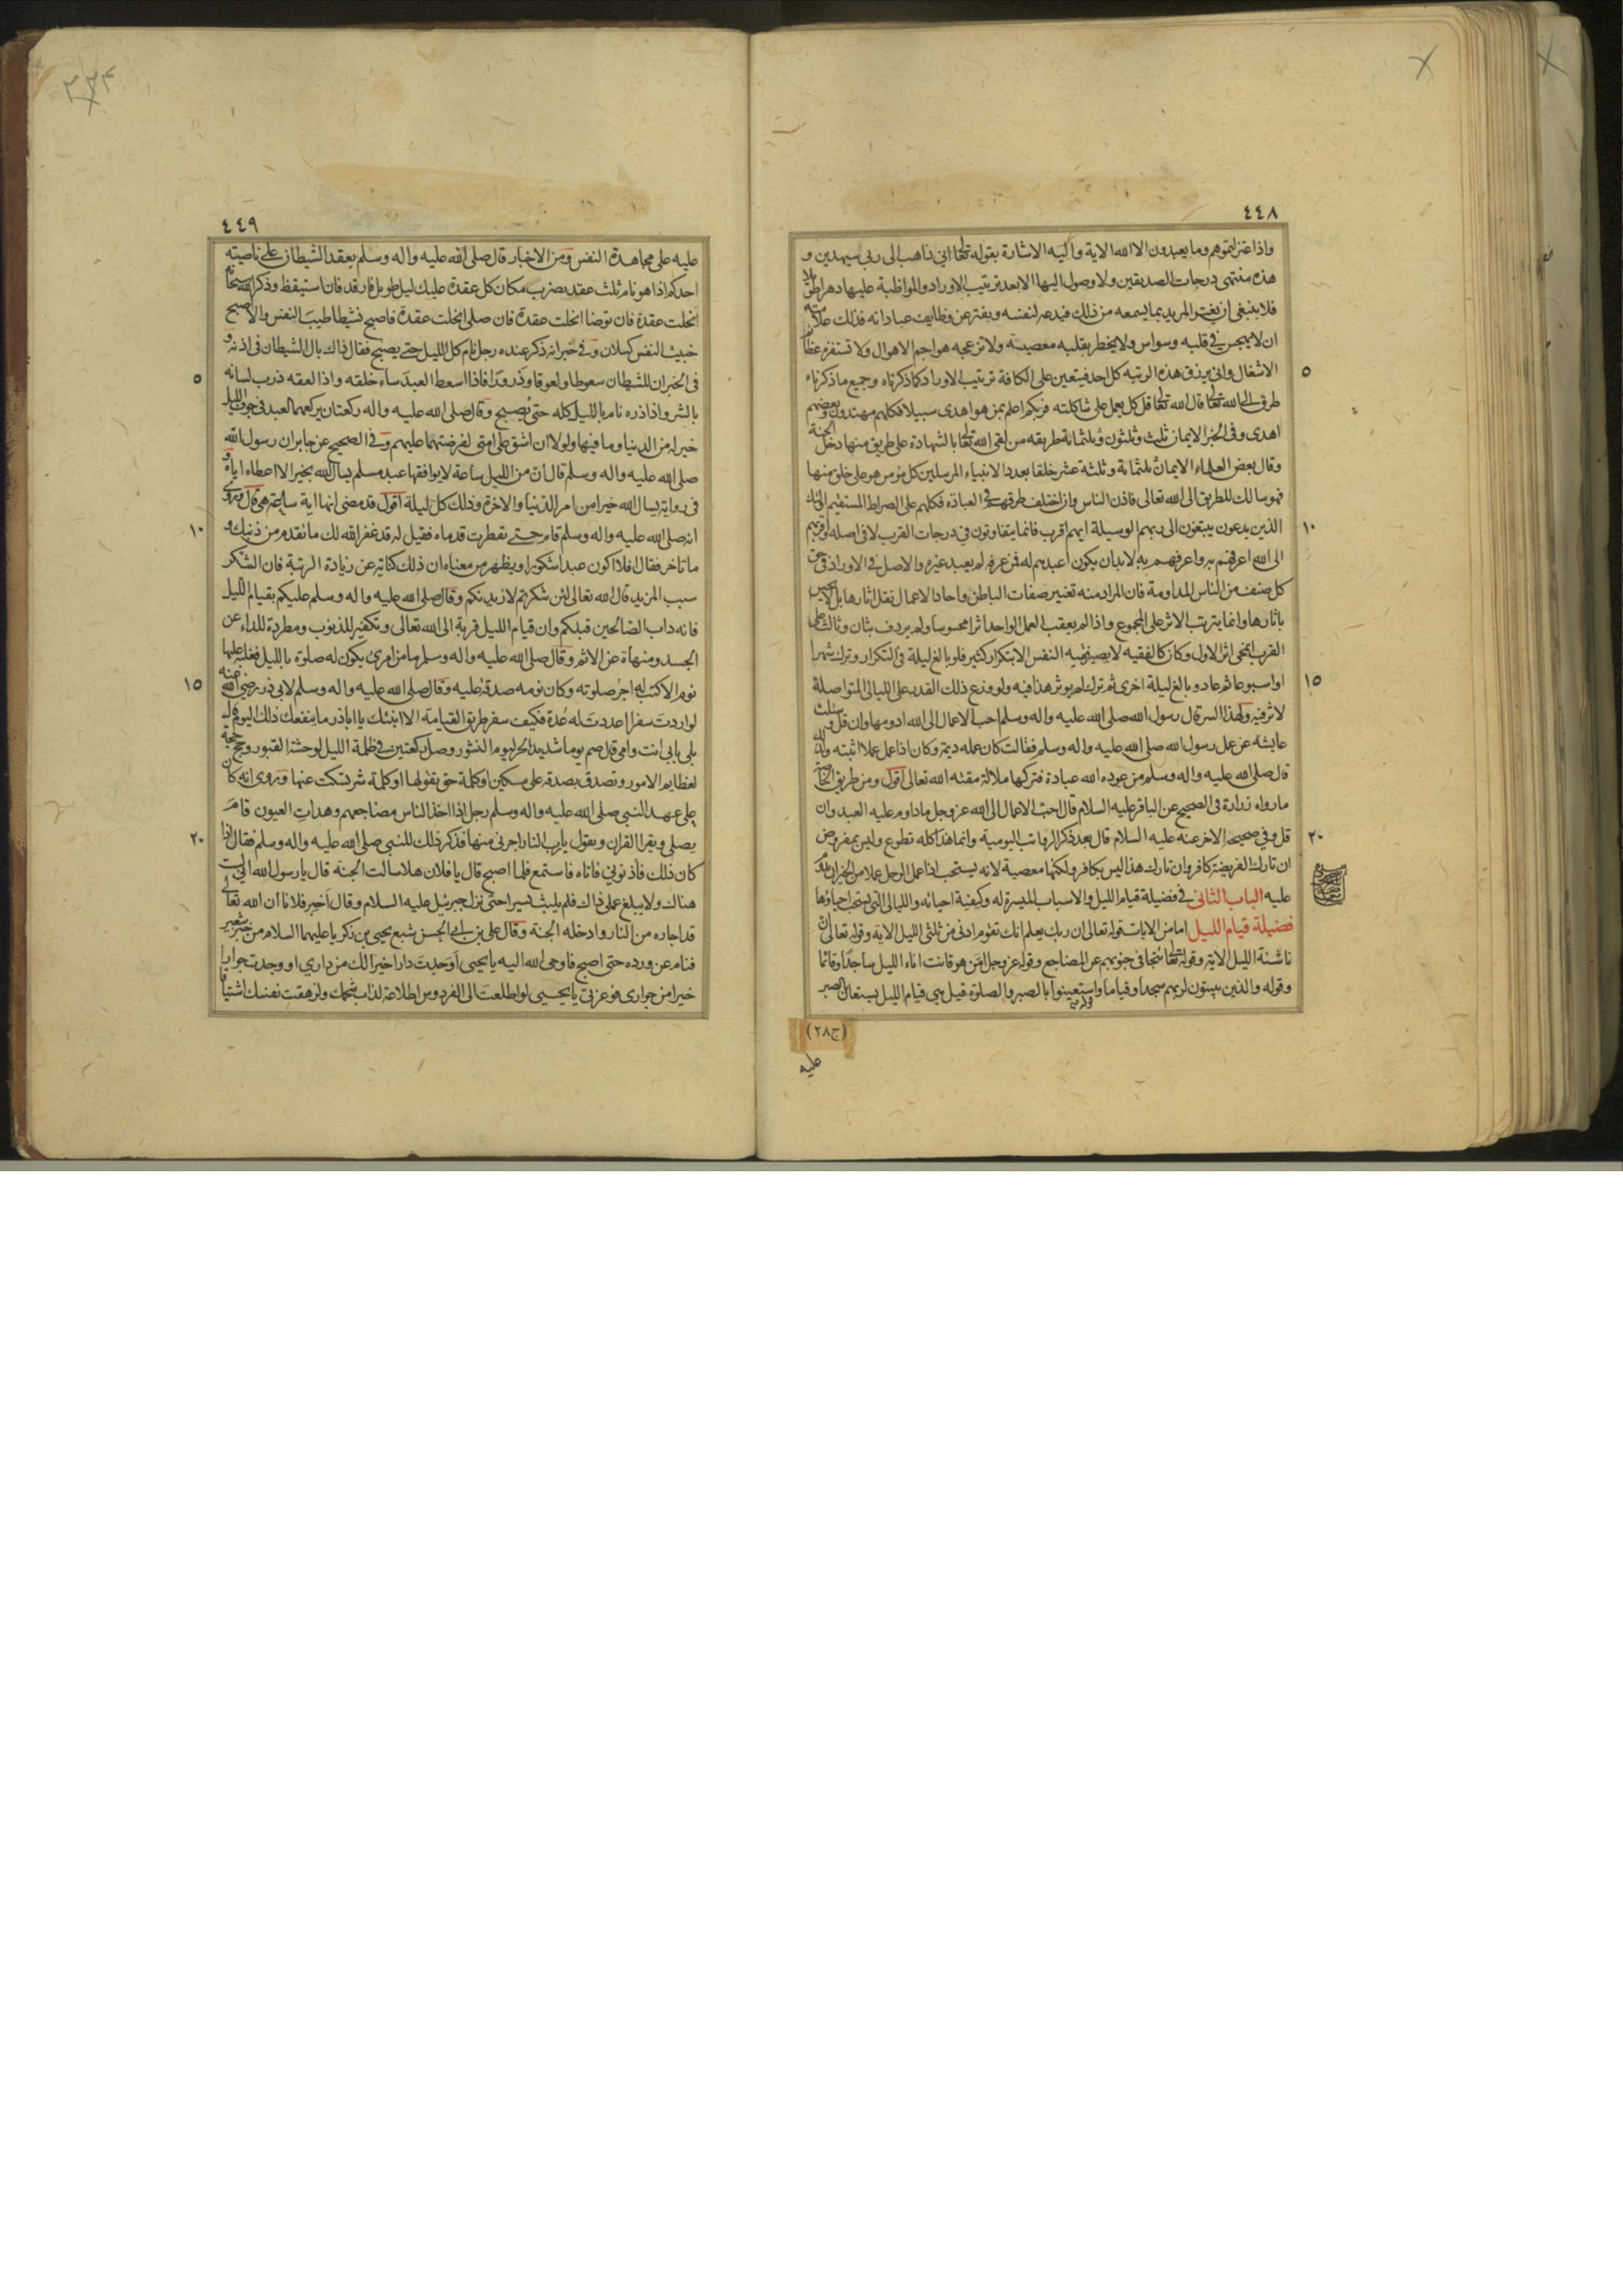 ٤٤٨
واذا عتزلتموهم وما يعبدون الا الله الاية واليه الاشارة بقوله تعالى اني ذاهب الى ربي سيهدين و
هذه منتهى درجات الصديقين ولا وصول اليها الا بعد ترتيب الاوراد والمواظبة عليها دهرا طويلا
فلا ينبغي ان يغتر المريد بما يسمعه من ذلك فيدعيه لنفسه ويفتر عن وظايف عباداته فذلك علامته
ان لا يهجس في قلبه وسواس ولا يخطر بقلبه معصية ولا تزعجه هواجم الاهوال ولا تستفزه عظائم
٥
الاشغال وانى يرزق هذه الرتبة كل احد فيتعين على الكافة ترتيب الاوراد كما ذكرناه وجميع ما ذكرناه
طرق الى الله تعالى قال الله تعالى قل كل يعمل على شاكلته فربكم اعلم بمن هو اهدى سبيلا فكلهم مهتدون وبعضهم
اهدى وفى الخبر الايمان ثلث وثلثون وثلثمائة طريقه من لقى الله تعالى بالشهادة على طريق منها دخل الجنة
وقال بعض العلماء الايمان ثلثمائة وثلثة عشر خلقا بعدد الانبياء المرسلين كل مؤمن هو على خلق منها
فهو سالك للطريق الى الله تعالى فاذن الناس وان اختلف طرقهم في العبادة فكلهم على الصراط المستقيم اولئك
١٠
الذين يدعون يبتغون الى ربهم الوسيلة ايهم اقرب فانما يتفاوتون في درجات القرب لا في اصله واقربهم
الى الله اعرفهم به واعرفهم به لا بد ان يكون اعبدهم له فمن عرفه لم يعبد غيره والاصل في الاوراد في حق
كل صنف من الناس المداومة فان المراد منه تغيير صفات الباطن واحاد الاعمال تقل اثارها بل لا يحس
باثارها وانما يترتب الاثر على المجموع واذا لم يعقب العمل الواحد اثرا محسوسا ولم يردف بثان وثالث على
القرب انمحى اثر الاول وكان كالفقيه لا يصير فقيه النفس الا بتكرار كثير فلو بالغ ليلة في التكرار وترك شهرا
١٥
او اسبوعا ثم عاد وبالغ ليلة اخرى ثم ترك لم يوثر هذا فيه ولو وزع ذلك القدر على الليالى المتواصلة
لاثر فيه ولهذا السر قال رسول الله صلى الله عليه واله وسلم احب الاعمال الى الله ادومها وان قل وسئلت
عايشة عن عمل رسول الله صلى الله عليه واله وسلم فقالت كان عمله ديمة وكان اذا عمل عملا اثبته ولذلك
قال صلى الله عليه واله وسلم من عوده الله عبادة فتركها ملالة مقته الله تعالى اقول ومن طريق الخاصة
ما رواه زرارة فى الصحيح عن الباقر عليه السلام قال احب الاعمال الى الله عز وجل ما داوم عليه العبد وان
٢٠
قل وفي صحيحه الاخر عنه عليه السلام قال بعد ذكر الرواتب اليومية وانما هذا كله تطوع وليس بمفروض
ان تارك الفريضة كافر وان تارك هذا ليس بكافر ولكنها معصية لانه يستحب اذا عمل الرجل عملا من الخير ان يدوم
عليه الباب الثانى في فضيلة قيام الليل والاسباب الميسرة له وكيفية احيائه والليالى التي يستحب احياؤها
فضيلة قيام الليل اما من الايات قوله تعالى ان ربك يعلم انك تقوم ادنى من ثلثى الليل الاية وقوله تعالى ان
ناشئة الليل الاية وقوله تعالى تتجافى جنوبهم عن المضاجع وقوله عز وجل امن هو قانت اناء الليل ساجدا وقائما
وقوله والذين يبيتون لربهم سجدا وقياما وقوله واستعينوا بالصبر والصلوة قيل هى قيام الليل يستعان بالصبر
(ج٢٨)
عليه
٤٤٩
عليه على مجاهدة النفس ومن الاخبار قال صلى الله عليه واله وسلم يعقد الشيطان على ناصيته
احدكم اذا هو نام ثلث عقد يضرب مكان كل عقدة عليك ليل طويل فارقد فان استيقظ وذكر الله سبحانه
انحلت عقدة فان توضا انحلت عقدة فان صلى انحلت عقدة فاصبح نشيطا طيب النفس والا اصبح
خبيث النفس كسلان وفى خبر انه ذكر عنده رجل نام كل الليل حتى يصبح فقال ذاك بال الشيطان فى اذنه و
٥
فى الخبر ان للشيطان سعوطا ولعوقا وذرورا فاذا اسعط العبد ساء خلقه واذا العقه ذرب لسانه
بالشر واذا ذره نام بالليل كله حتى يصبح وقال صلى الله عليه واله ركعتان يركعهما العبد فى جوف الليل
خير له من الدنيا وما فيها ولولا ان اشق على امتى لفرضتهما عليهم وفى الصحيح عن جابر ان رسول الله
صلى الله عليه واله وسلم قال ان من الليل ساعة لا يوافقها عبد مسلم يسال الله بخير الا اعطاه اياه و
فى رواية يسال الله خيرا من امر الدنيا والاخرة وذلك كل ليلة اقول قد مضى انها اية ساعة هى قال وروى
١٠
انه صلى الله عليه واله وسلم قام حتى تفطرت قدماه فقيل له قد غفر الله لك ما تقدم من ذنبك و
ما تاخر فقال افلا اكون عبدا شكورا ويظهر من معناه ان ذلك كناية عن زيادة الرتبة فان الشكر
سبب المزيد قال الله تعالى لئن شكرتم لازيدنكم وقال صلى الله عليه واله وسلم عليكم بقيام الليل
فانه داب الصالحين قبلكم وان قيام الليل قربة الى الله تعالى وتكفير للذنوب ومطردة للداء عن
الجسد ومنهاة عن الاثم وقال صلى الله عليه واله وسلم ما من امرئ يكون له صلوة بالليل فغلبه عليها
١٥
نوم الا كتب له اجر صلوته وكان نومه صدقة عليه وقال صلى الله عليه واله وسلم لابى ذر رضى الله عنه
لو اردت سفرا اعددت له عدة فكيف سفر طريق القيامة الا انبئك يا اباذر ما ينفعك ذلك اليوم قال
بلى بابى انت وامى قال صم يوما شديد الحر ليوم النشور وصل ركعتين فى ظلمة الليل لوحشة القبور وحج حجة
لعظايم الامور وتصدق بصدقة على مسكين او كلمة حق تقولها او كلمة شر تسكت عنها وروى انه كان
على عهد النبى صلى الله عليه واله وسلم رجل اذا اخذ الناس مضاجعهم وهدات العيون قام
٢٠
يصلى ويقرا القران ويقول يا رب النار اجرنى منها فذكر ذلك للنبى صلى الله عليه واله وسلم فقال اذا
كان ذلك فاذنونى فاتاه فاستمع فلما اصبح قال يا فلان هلا سالت الجنة قال يا رسول الله انى لست
هناك ولا يبلغ عملى ذاك فلم يلبث يسيرا حتى نزل جبرئيل عليه السلام وقال اخبر فلانا ان الله تعالى
قد اجاره من النار وادخله الجنة وقال على بن ابى الحسن شبع يحيى بن زكريا عليهما السلام من خبز شعير
فنام عن ورده حتى اصبح فاوحى الله اليه يا يحيى اوجدت دارا خيرا لك من داري او وجدت جوارا
خيرا من جوارى فوعزتى يا يحيى لو اطلعت الى الفردوس اطلاعة لذاب شحمك ولزهقت نفسك اشتياقا